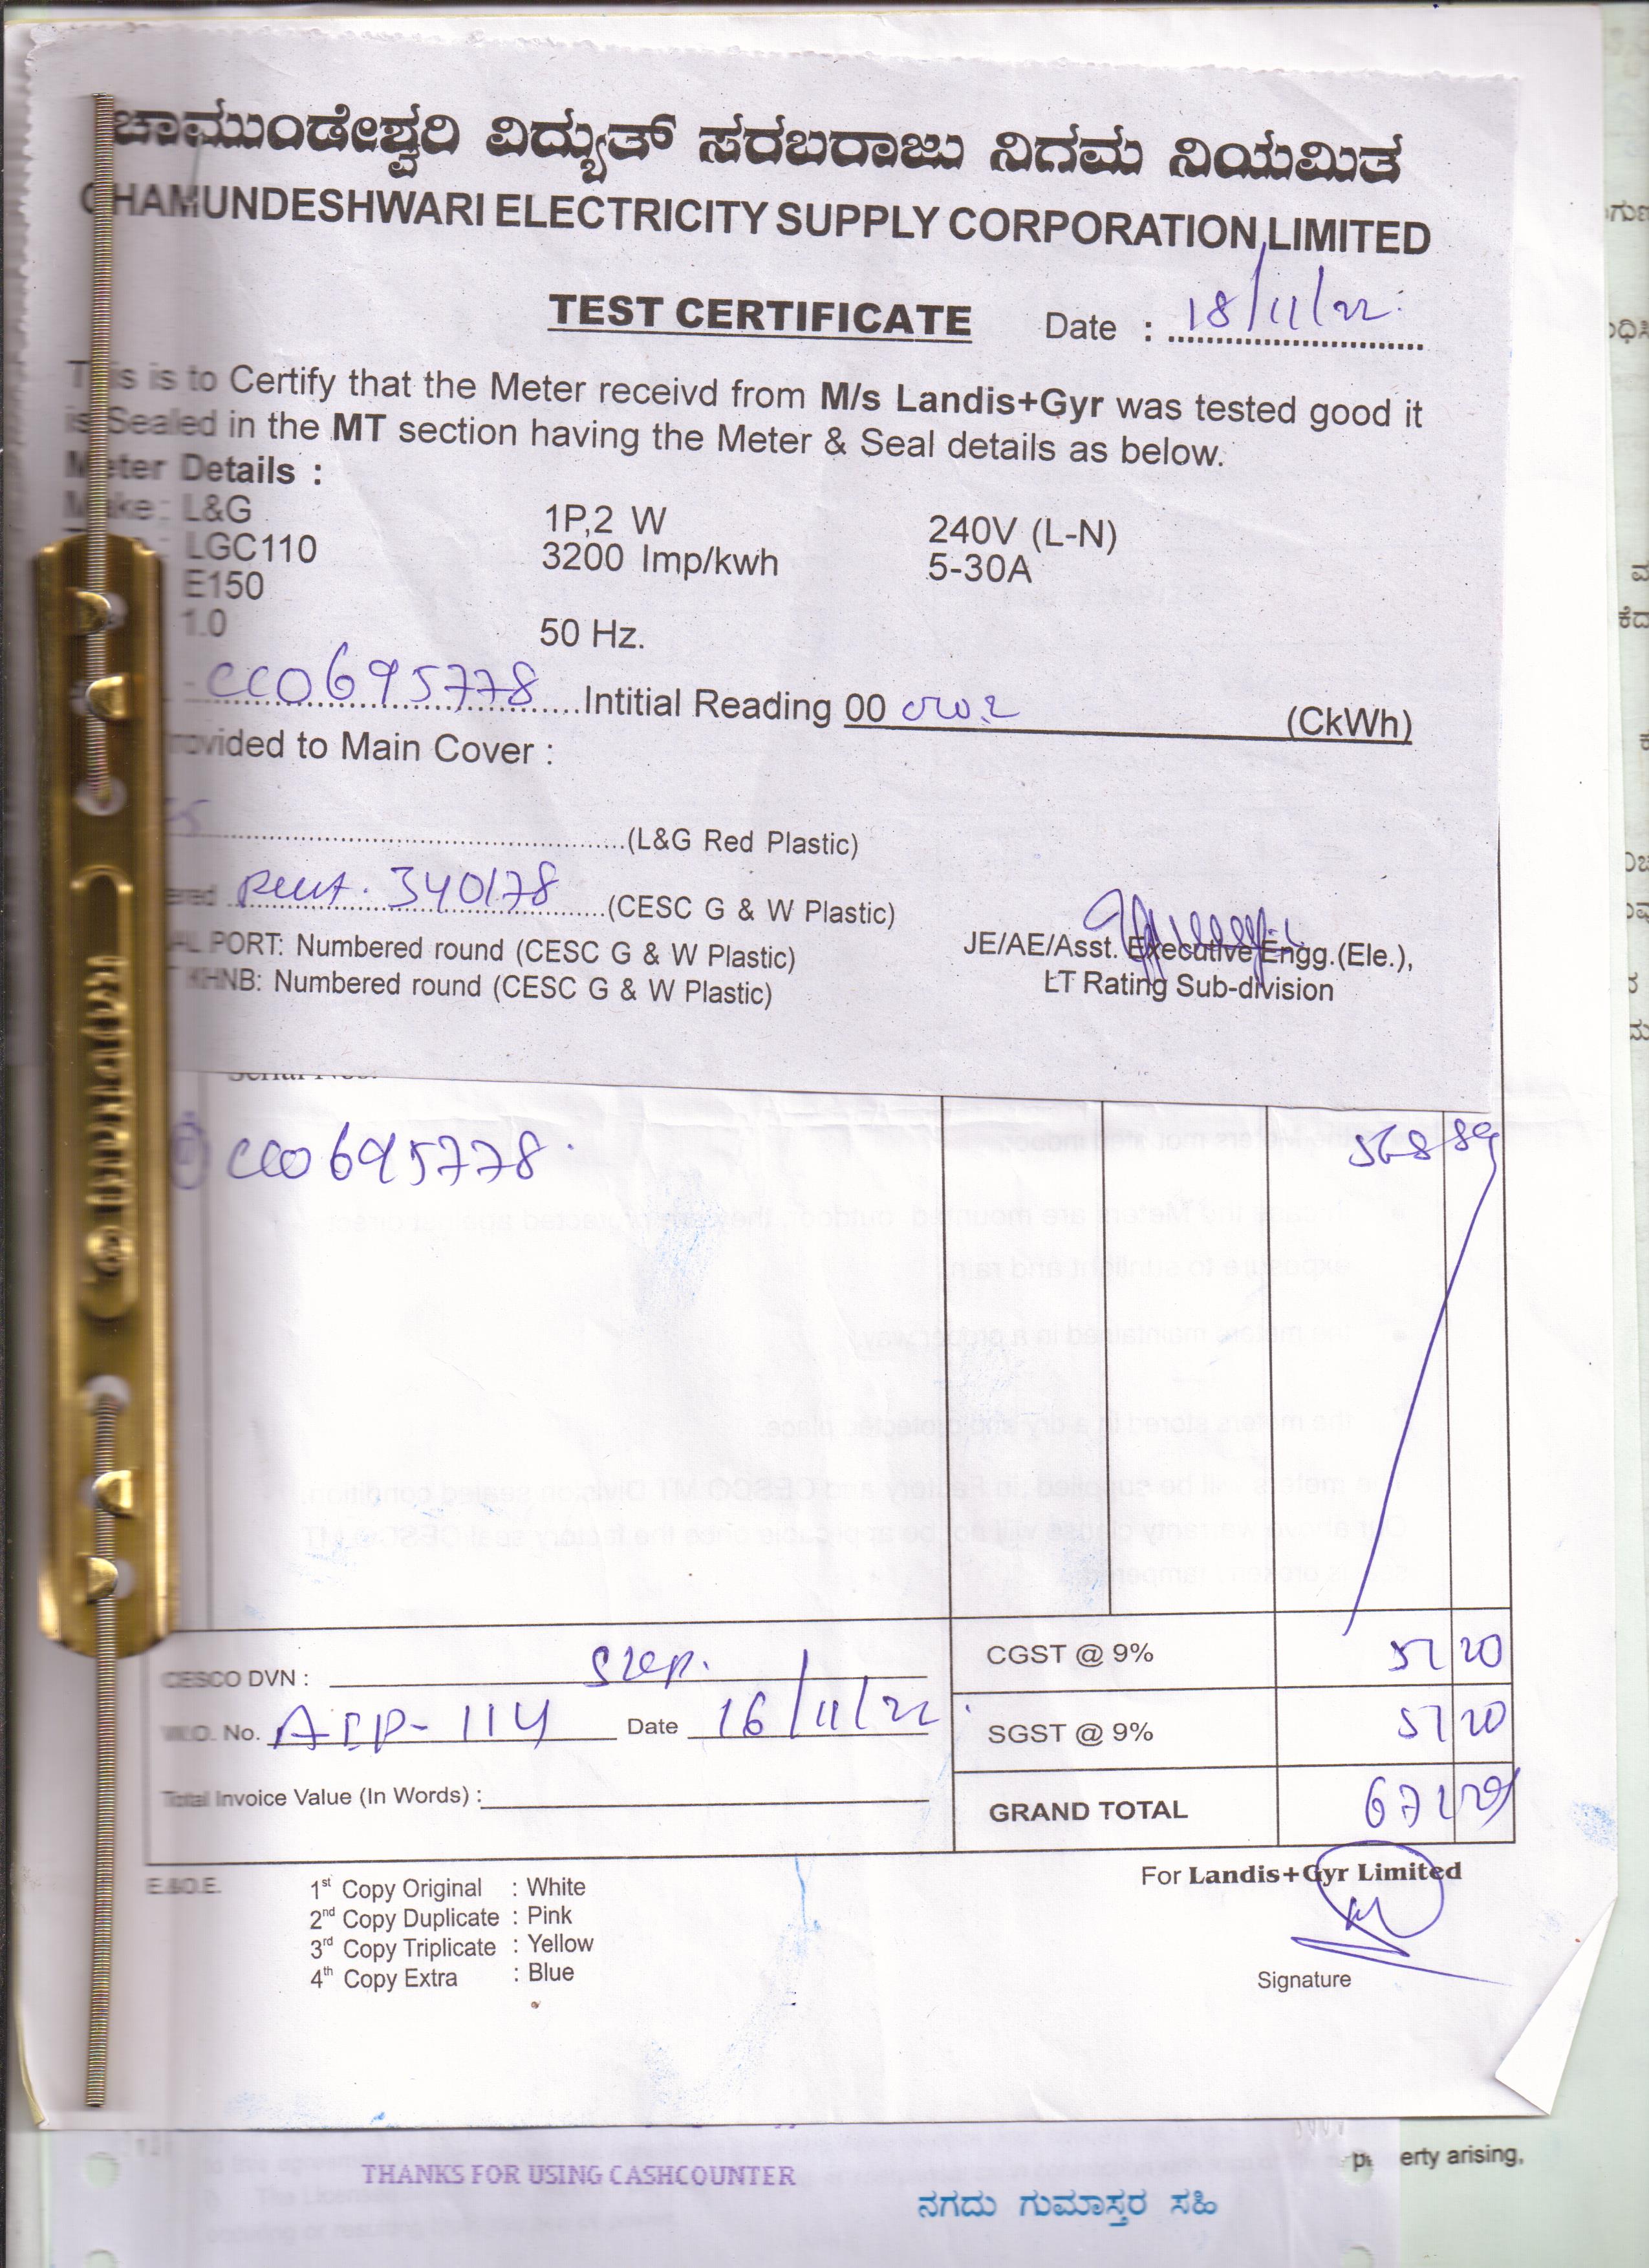 ಚಾಮುಂಡೇಶ್ವರಿ ವಿದ್ಯುತ್ ಸರಬರಾಜು ನಿಗಮ ನಿಯಮಿತ
CHAMUNDESHWARI ELECTRICITY SUPPLY CORPORATION LIMITED
TEST CERTIFICATE Date : 18/11/22
This is to Certify that the Meter receivd from M/s Landis+Gyr was tested good it
is Sealed in the MT section having the Meter & Seal details as below.
Meter Details :
Make : L&G 1P,2 W 240V (L-N)
: LGC110 3200 Imp/kwh 5-30A
E150
1.0 50 Hz.
CC0695778 Intitial Reading 00 (CkWh)
rovided to Main Cover :
(L&G Red Plastic)
ered 340178 (CESC G & W Plastic)
AL PORT: Numbered round (CESC G & W Plastic) JE/AE/Asst. Executive Engg.(Ele.),
KHNB: Numbered round (CESC G & W Plastic) LT Rating Sub-division
Serial Nos.
CC0695778 568 89
CESCO DVN : CGST @ 9% 51 20
W.O. No. AEP-114 Date 16/11/22 SGST @ 9% 51 20
Total Invoice Value (In Words) : GRAND TOTAL 671 29
E.&O.E. For Landis+Gyr Limited
1st Copy Original : White
2nd Copy Duplicate : Pink
3rd Copy Triplicate : Yellow
4th Copy Extra : Blue
Signature
erty arising,
THANKS FOR USING CASHCOUNTER
ನಗದು ಗುಮಾಸ್ತರ ಸಹಿ